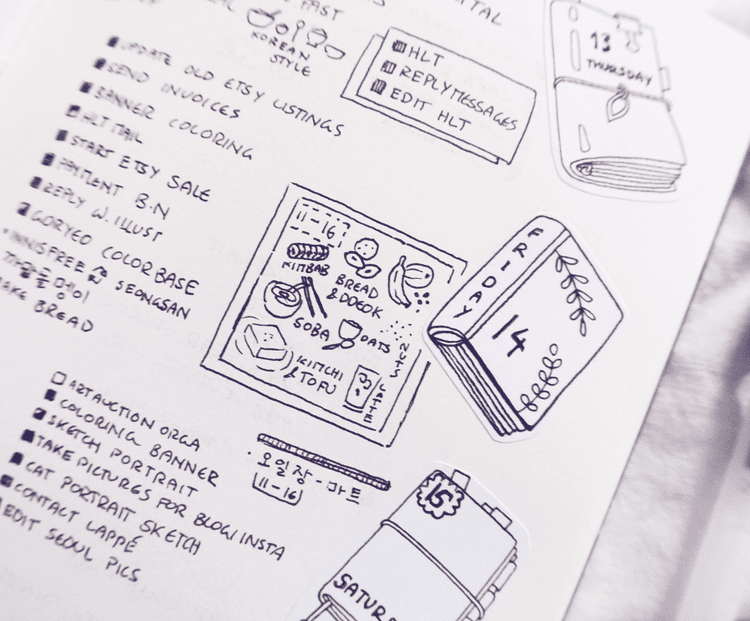 KOREAN
STYLE
HLT
REPLY MESSAGES
EDIT HLT
13
THURSDAY
UPDATE OLD ETSY LISTINGS
SEND INVOICES
BANNER COLORING
HLT MAIL
START ETSY SALE
PAYMENT B.N
REPLY W. ILLUST
GORYEO COLORBASE
INNISFREE SEONGSAN
BREAD
11-16
KIMBAB
BREAD
& DDEOK
SOBA
OATS
NUTS
KIMTCHI
& TOFU
LATTE
FRIDAY
14
ART AUCTION ORGA
COLORING BANNER
SKETCH PORTRAIT
TAKE PICTURES FOR BLOG/INSTA
CAT PORTRAIT SKETCH
CONTACT LAPPÉ
EDIT SEOUL PICS
오일장-마트
11-16
15
SATUR